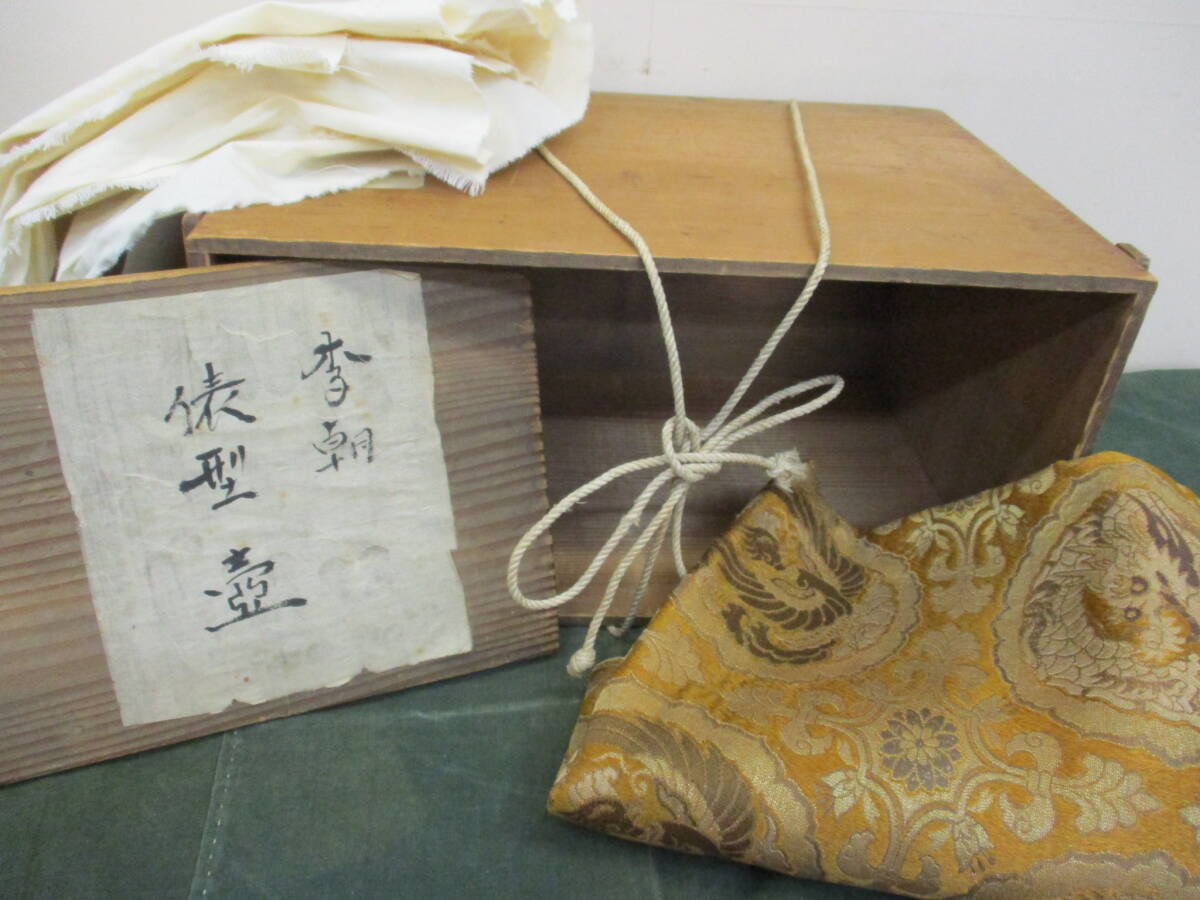 李朝
俵型壺